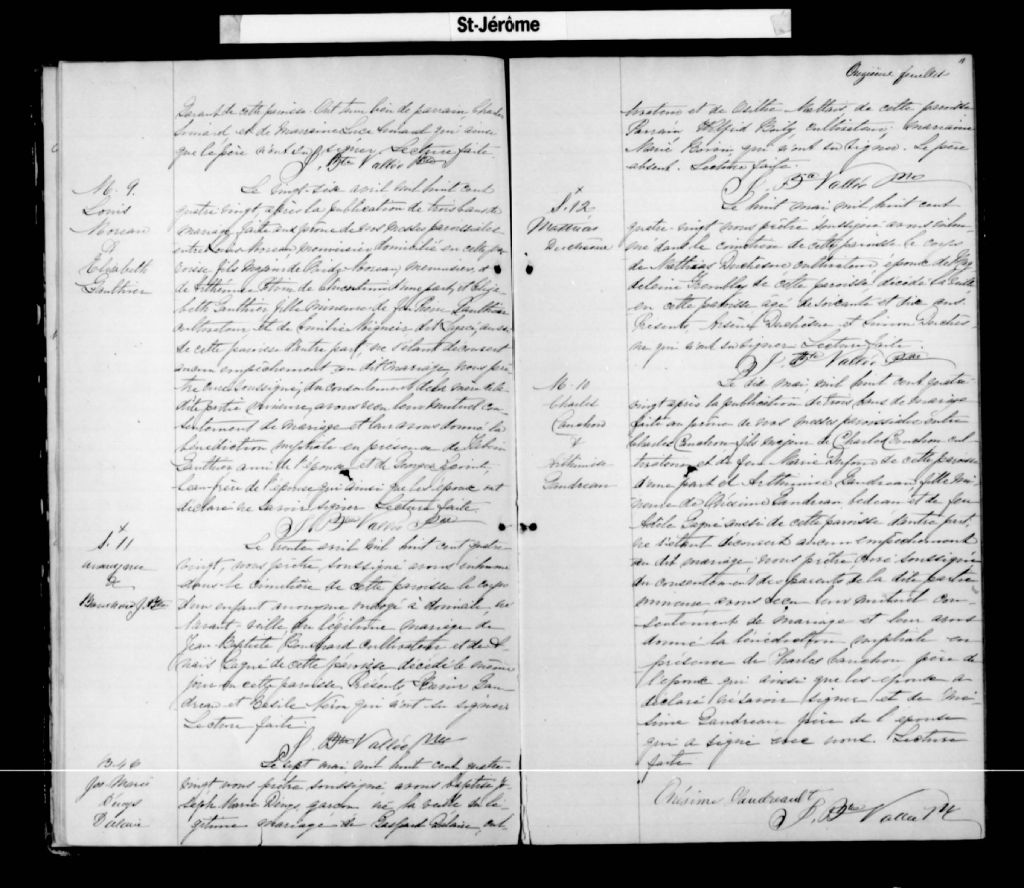 St-Jérôme
Savard de cette paroisse. Ont été de parrain, Charles
Simard et de Marraine Luce Simard qui ainsi
que le père n'ont su signer. Lecture faite.
J. Bte Vallée Ptre
M. 9.
Louis
Moreau
&
Elizabeth
Gauthier
Le vingt-six avril mil huit cent
quatre vingt, après la publication de trois bans de
mariage faite aux prônes de nos messes paroissiales
entre Louis Moreau menuisier, domicilié en cette pa-
roisse fils majeur de Moreau, menuisier, et
de d'une part, et Eliza-
beth Gauthier fille mineure de Gauthier
cultivateur et de Emilie aussi
de cette paroisse d'autre part, ne s'étant découvert
aucun empêchement au dit mariage, nous prê-
tre curé soussigné, du consentement de la mère de la
dite partie mineure, avons reçu leur mutuel con-
sentement de mariage et leur avons donné la
bénédiction nuptiale en présence de
Gauthier ami de l'époux et de
beau-frère de l'épouse qui ainsi que les époux ont
déclaré ne savoir signer. Lecture faite.
J. Bte Vallée Ptre
S. 11
anonyme
de
Bouchard J. Bte
Le trente avril mil huit cent quatre-
vingt, nous prêtre, soussigné avons inhumé
dans le cimetière de cette paroisse le corps
d'un enfant anonyme ondoyé à domicile, né
l'avant-veille du légitime mariage de
Jean Baptiste Bouchard cultivateur et de
Gagné de cette paroisse décédé le même
jour en cette paroisse. Présents Gau-
dreau et Basile qui n'ont su signer
Lecture faite
J. Bte Vallée Ptre
B. 46
Jos Marie
Denys
Dalaire
Le sept mai, mil huit cent quatre
vingt nous prêtre soussigné avons baptisé Jo-
seph Marie Denys garçon né la veille du lé-
gitime mariage de Gaspard Dalaire, cul-
11
Onzième feuillet
tivateur et de Maltais de cette paroisse
Parrain Wilfrid Boily cultivateur; marraine
Marie qui n'ont su signer. Le père
absent. Lecture faite.
J. Bte Vallée Ptre
S. 12
Mathias
Duchêne
Le huit mai mil huit cent
quatre-vingt nous prêtre soussigné avons inhu-
mé dans le cimetière de cette paroisse le corps
de Mathias Duchesne cultivateur, époux de Mag
deleine Tremblay de cette paroisse, décédé la veille
en cette paroisse âgé de soixante et dix ans.
Présents Arsène Duchêsne, et Simon Duches-
ne qui n'ont su signer Lecture faite.
J. Bte Vallée Ptre
M. 10
Charles
Cauchon
&
Arthimise
Gaudreau
Le dix mai, mil huit cent quatre
vingt après la publication de trois bans de mariage
faite au prône de nos messes paroissiales entre
Charles Cauchon fils majeur de Charles Cauchon cul
tivateur et de feue Marie Dufour de cette paroisse
d'une part et Arthimise Gaudreau fille mi-
neure de Onésime Gaudreau bedeau et de feue
Adèle Gagné aussi de cette paroisse d'autre part,
ne s'étant découvert aucun empêchement
au dit mariage nous prêtre curé soussigné
du consentement des parents de la dite partie
mineure avons reçu leur mutuel con-
sentement de mariage et leur avons
donné la bénédiction nuptiale en
présence de Charles Cauchon père de
l'époux qui ainsi que les époux a
déclaré ne savoir signer et de Oné-
sime Gaudreau père de l'épouse
qui a signé avec nous. Lecture
faite
Onésime Gaudreault
J. Bte Vallée Ptre